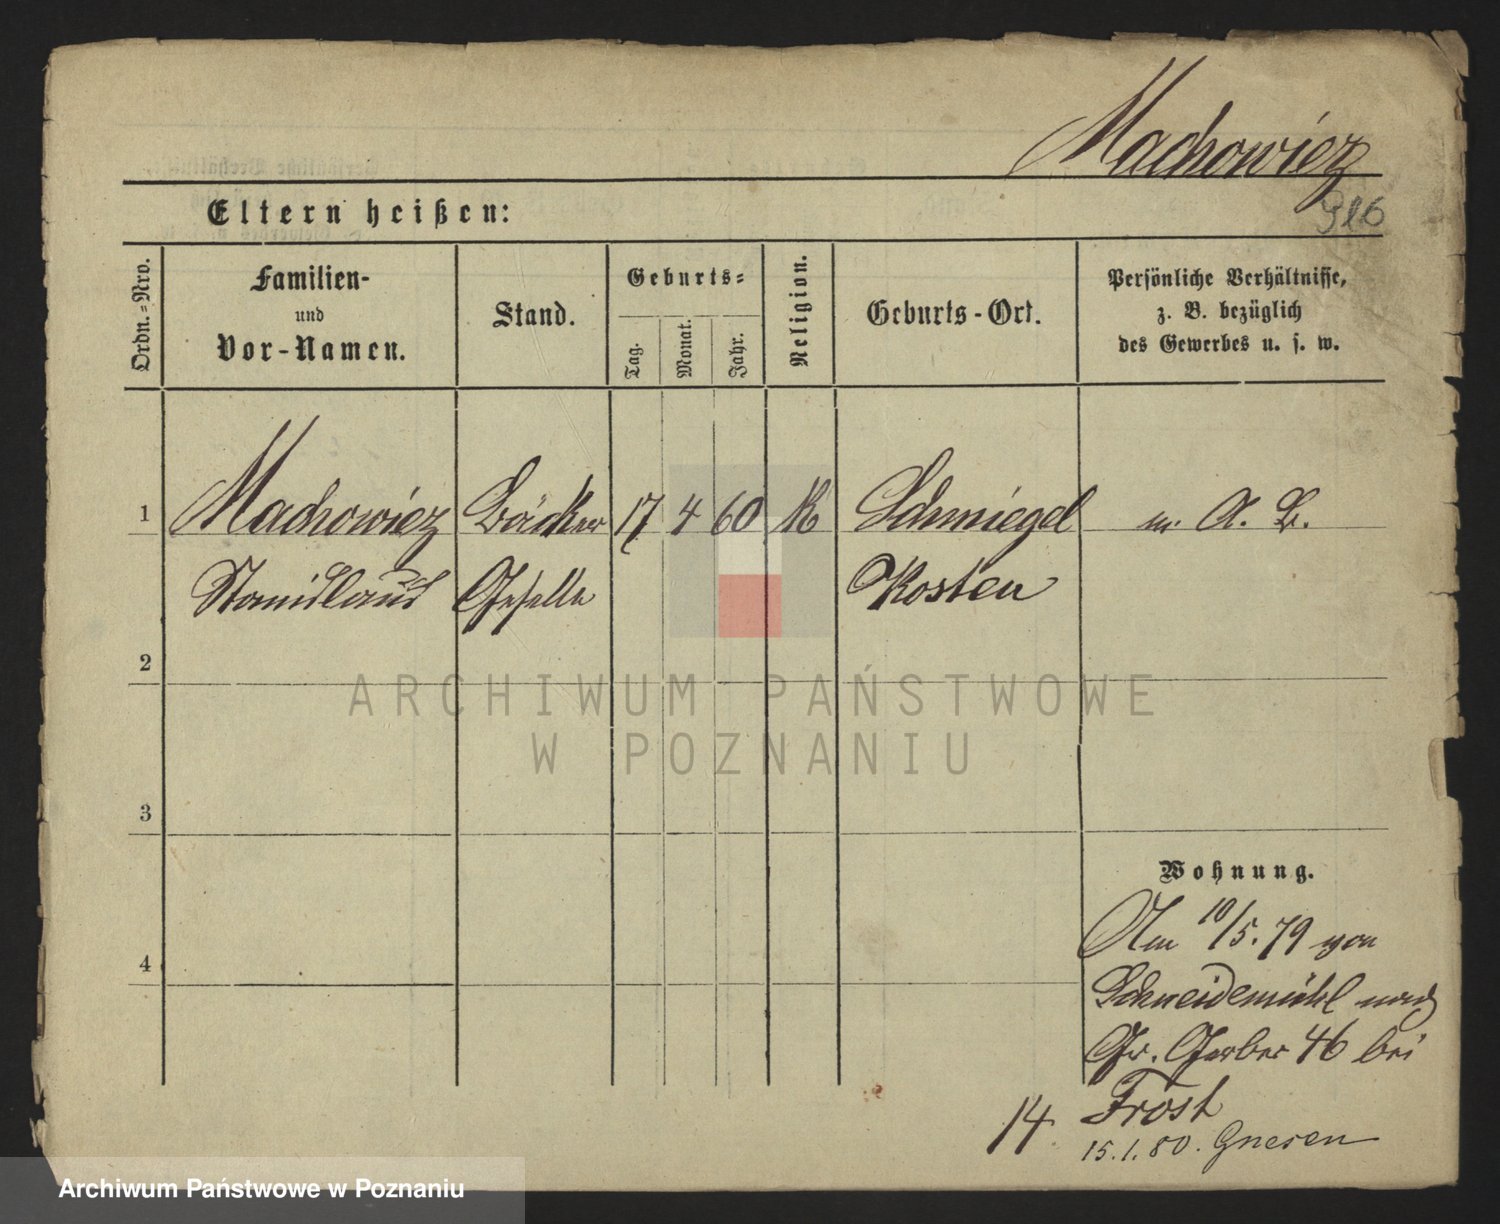 Machowicz
916
Eltern heißen:
Ordn.-Nro.
Familien-
und
Vor-Namen.
Stand.
Geburts-
Tag.
Monat.
Jahr.
Religion.
Geburts-Ort.
Persönliche Verhältnisse,
z. B. bezüglich
des Gewerbes u. s. w.
1 Machowicz Bäcker 17 4 60 K Schmiegel m. A. B.
Stanislaus Geselle Kosten
2
3
4
Wohnung.
Am 10/5.79 von
Schneidemühl nach
Gr. Gerber 46 bei
Frost
14
15.1.80. Gnesen
ARCHIWUM PAŃSTWOWE
W POZNANIU
Archiwum Państwowe w Poznaniu